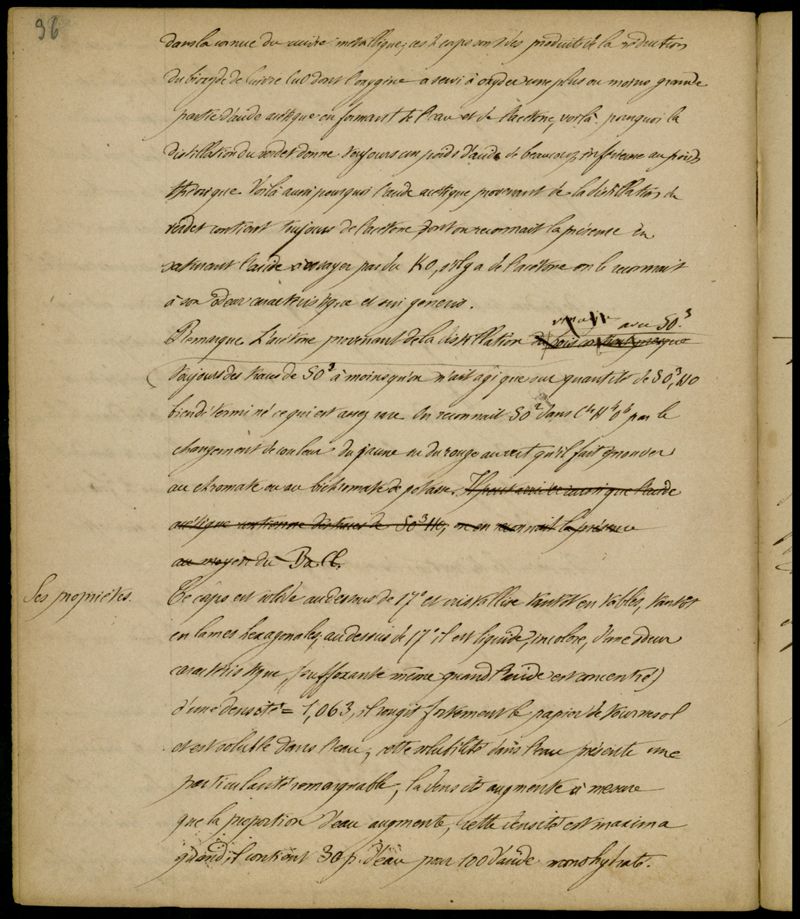 96
dans la cornue du cuivre métallique, ces 2 corps sont des produits de la réduction
du bioxyde de cuivre CuO dont l'oxygène a servi à oxyder une plus ou moins grande
partie d'acide acétique en formant de l'eau et de l'acétone, voilà pourquoi la
distillation du verdet donne toujours un poids d'acide de beaucoup inférieur au poids
théorique. Voilà aussi pourquoi l'acide acétique provenant de la distillation du
verdet contient toujours de l'acétone dont on reconnait la présence en
saturant l'acide essayer par du KO, s'il y a de l'acétone on le reconnait
à son odeur caractéristique et sui generis.
avec SO³
Remarque L'acétone provenant de la distillation
toujours des traces de SO² à moins qu'on n'ait agi que sur quantité de SO³,HO
bien déterminé ce qui est assez rare. On reconnait SO² dans C⁴H⁴O⁴ par le
changement de couleur du jaune ou du rouge au vert qu'il fait éprouver
au chromate ou au bichromate de potasse. Il peut arriver aussi que l'acide
acétique contienne des traces de SO³HO, on en reconnait la présence
au moyen du BaCl.
Ses propriétés.
Ce corps est solide au dessous de 17° et cristallise tantôt en tables, tantôt
en lames hexagonales, au dessus de 17° il est liquide, incolore, d'une odeur
caractéristique, (suffoxante même quand l'acide est concentré)
d'une densité = 1,063, il rougit fortement le papier de tournesol
et est soluble dans l'eau, cette solubilité dans l'eau présente une
particularité remarquable, la densité augmente à mesure
que la proportion d'eau augmente, cette densité est maxima
quand il contient 30 p. d'eau pour 100 d'acide monohydraté.